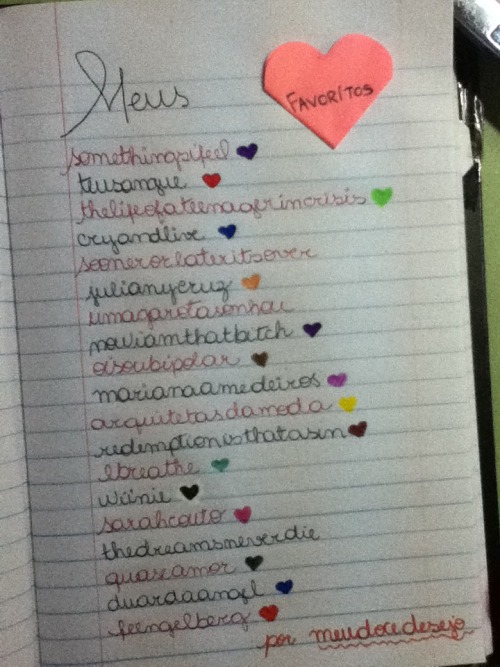 Meus
FAVORITOS
somethingsifeel
teusangue
thelifeofateenagerincrisis
cryandlive
soonerorlateritsover
julianycruz
umagarotasonhou
nowiamthatbitch
oisoubipolar
marianaamedeiros
arquitetasdamoda
redemptionisthatasin
ebreathe
wiinie
sarahcouto
thedreamsneverdie
quaseamor
duardaangel
feengelberg
por meudocedesejo